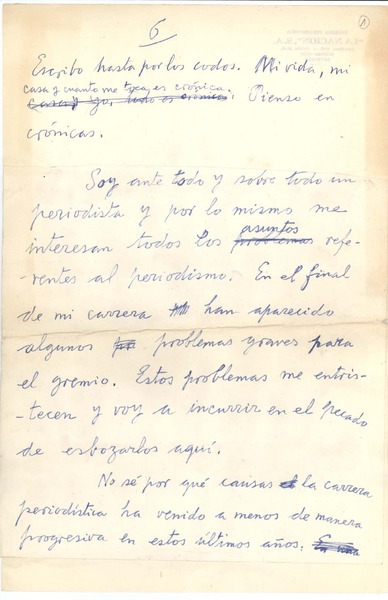 6
1
"LA NACION", S.A.
Escribo hasta por los codos. Mi vida, mi
casa y cuanto me toca, es crónica.
Pienso en
crónicas.
Soy ante todo y sobre todo un
periodista y por lo mismo me
interesan todos los asuntos refe-
rentes al periodismo. En el final
de mi carrera han aparecido
algunos problemas graves para
el gremio. Estos problemas me entris-
tecen y voy a incurrir en el pecado
de esbozarlos aquí.
No sé por qué causas la carrera
periodística ha venido a menos de manera
progresiva en estos últimos años.